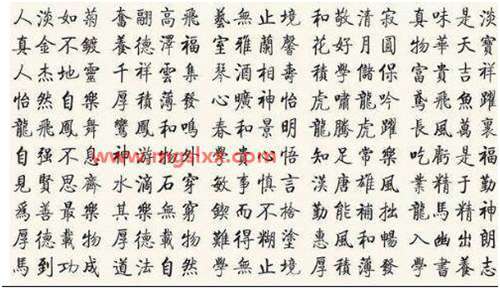 人淡如菊 奮翮高飛 藝無止境 和敬清寂 真味是淡
真金不鍍 養德澤福 室雅蘭馨 花好月圓 物華天寶
人杰地靈 千祥雲集 琴酒相壽 積學儲保 富貴吉祥
怡然自樂 厚積薄發 心曠神怡 虎嘯龍吟 鳶飛魚躍
龍飛鳳舞 鸞鳳和鳴 春和景明 龍騰虎躍 長風萬裏
自强不息 神游物外 學貴心悟 知足常樂 吃虧是福
www.mgslxx.com
見賢思齊 水滴石穿 敏事慎言 漢唐雄風 業精于勤
爲善最樂 其樂無窮 而不捨 勤能補拙 龍馬精神
厚德載物 厚德載物 難得糊塗 惠風和暢 入幽出朗
馬到功成 道法自然 學無止境 厚積薄發 學書養志